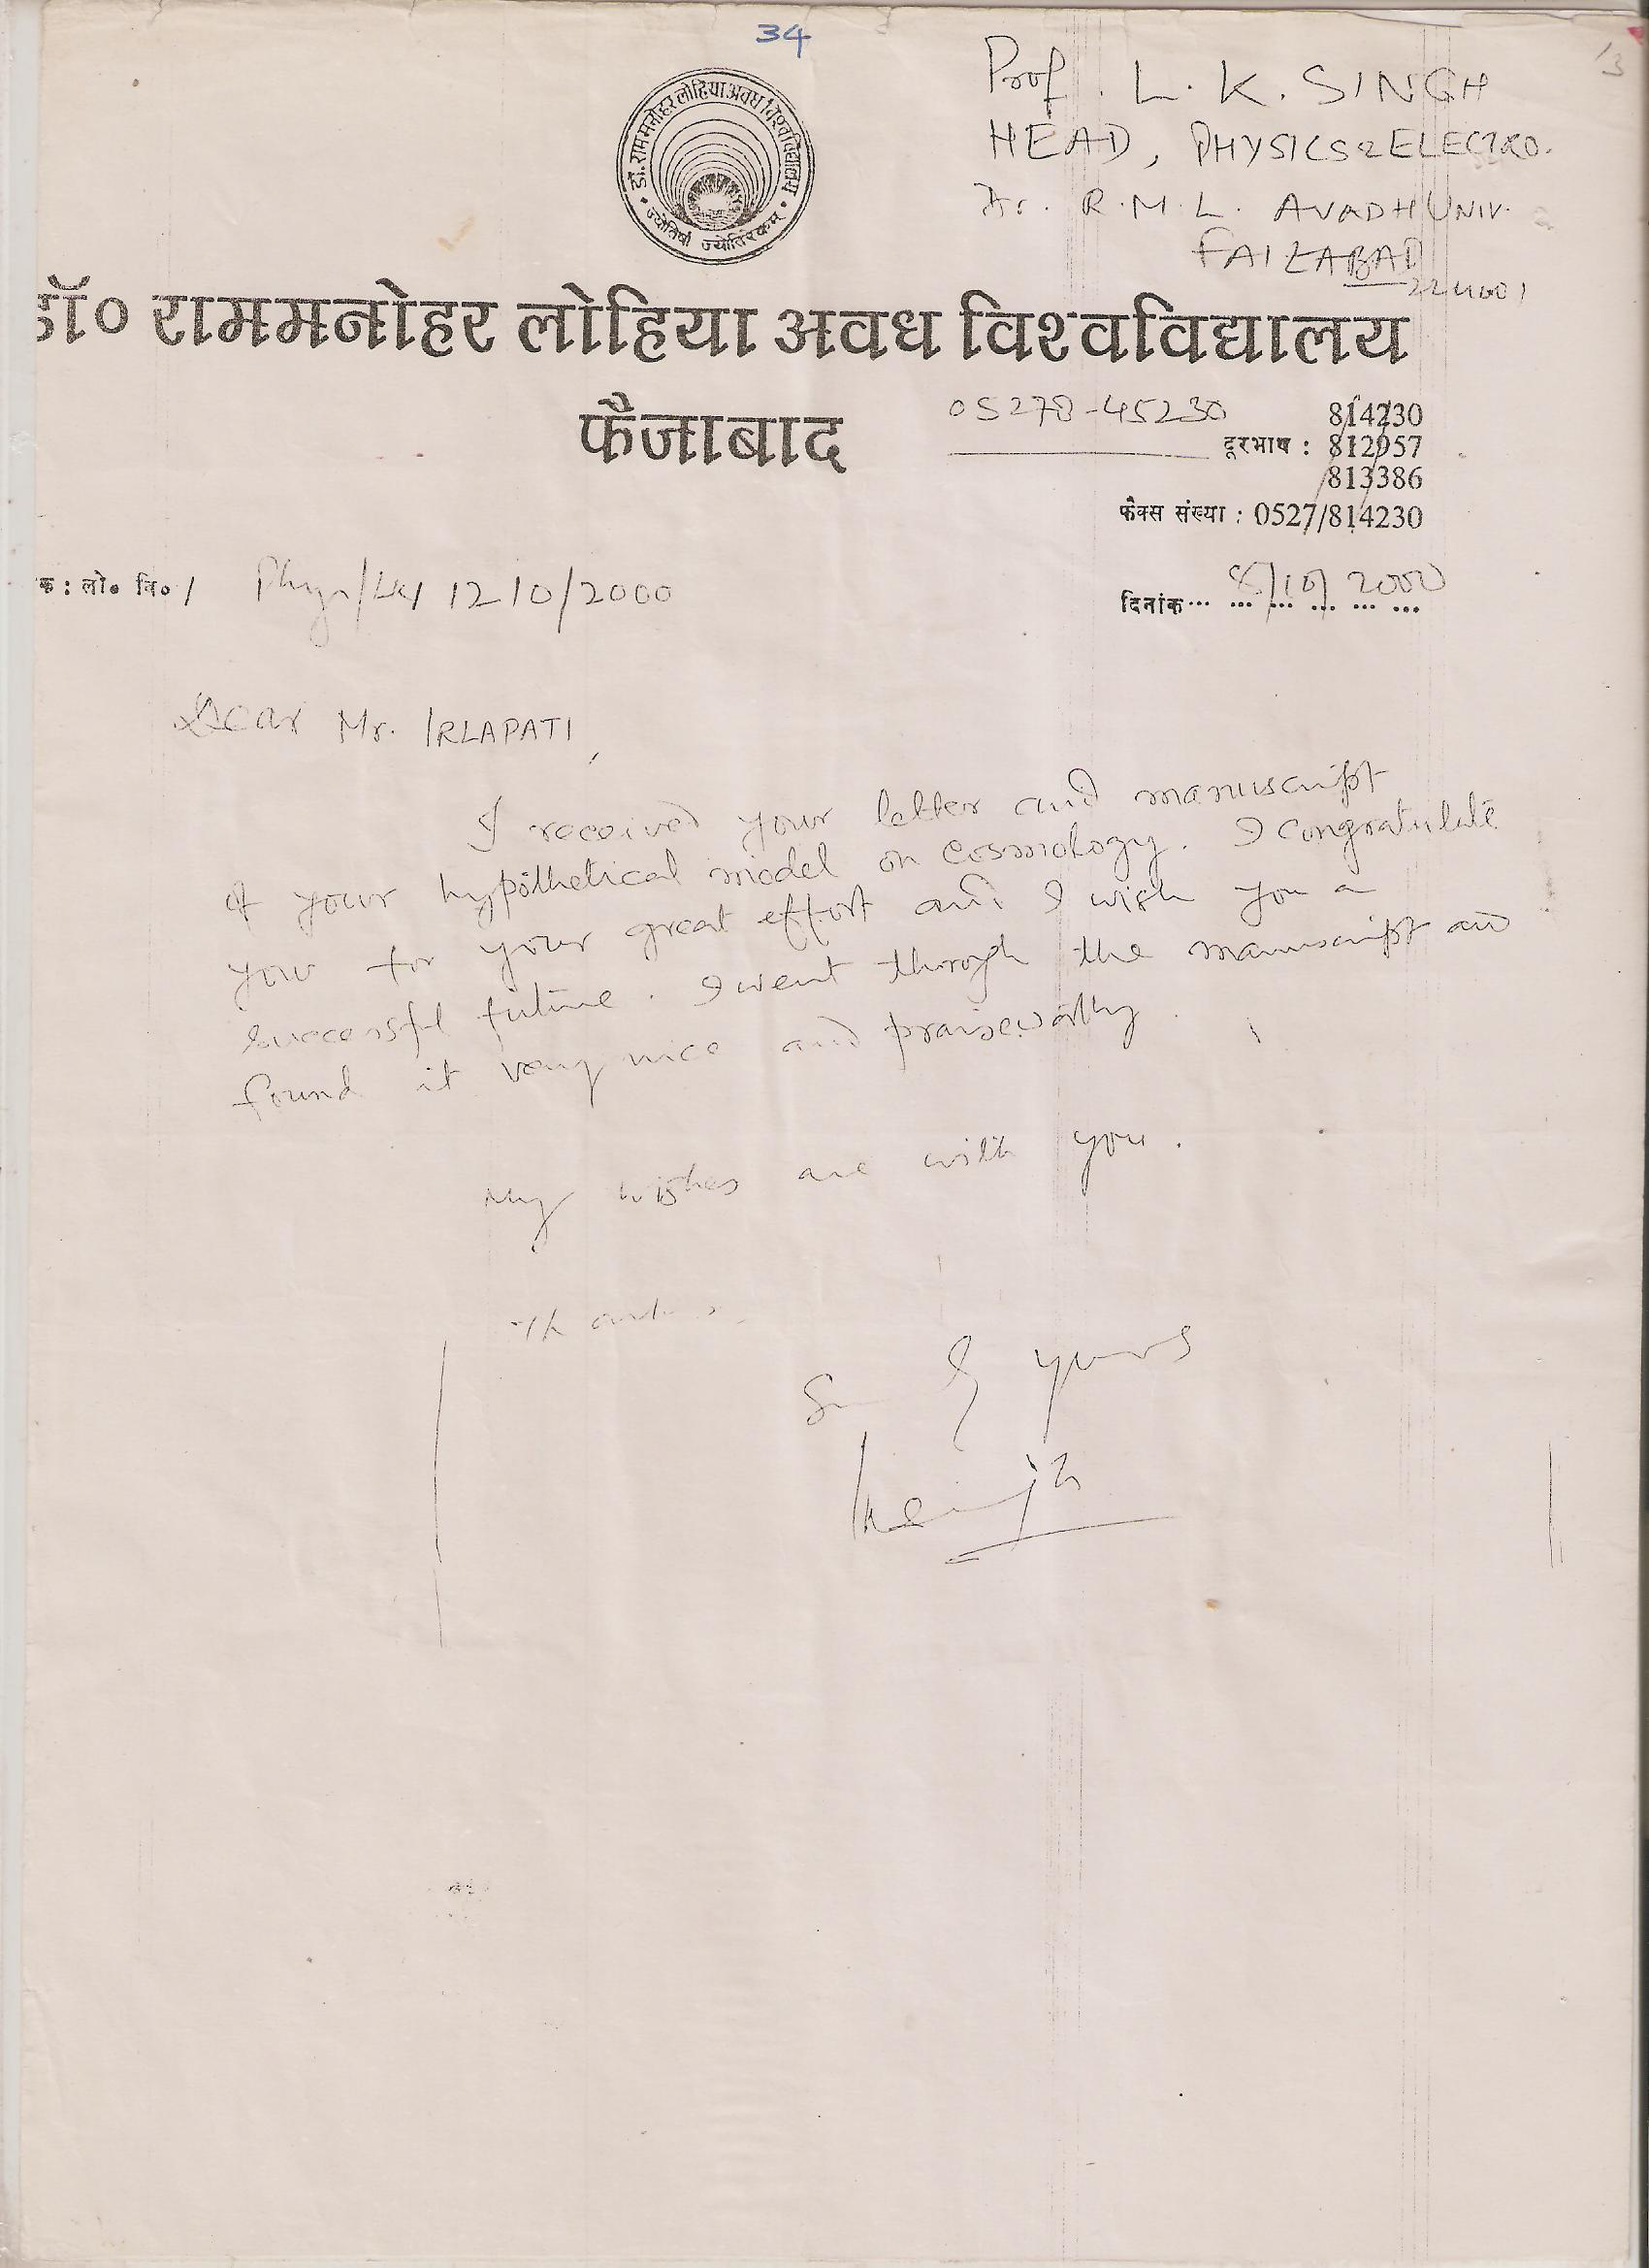 34
13
Prof. L. K. SINGH
HEAD, PHYSICS & ELECTRO.
Dr. R.M.L. AVADH UNIV.
FAIZABAD
224001
डॉ. राममनोहर लोहिया अवध विश्वविद्यालय
ज्योतिषां ज्योतिरेकम्
डॉ० राममनोहर लोहिया अवध विश्वविद्यालय
फैजाबाद
05278-45230
814230
दूरभाष : 812957
813386
फैक्स संख्या : 0527/814230
क : लो० वि० / 1210/2000
दिनांक 8/10/2000
Dear Mr. IRLAPATI,
I received your letter and manuscript
of your hypothetical model on cosmology. I congratulate
you for your great effort and I wish you a
successful future. I went through the manuscript and
found it very nice and praiseworthy.
My wishes are with you.
Thanks
yours